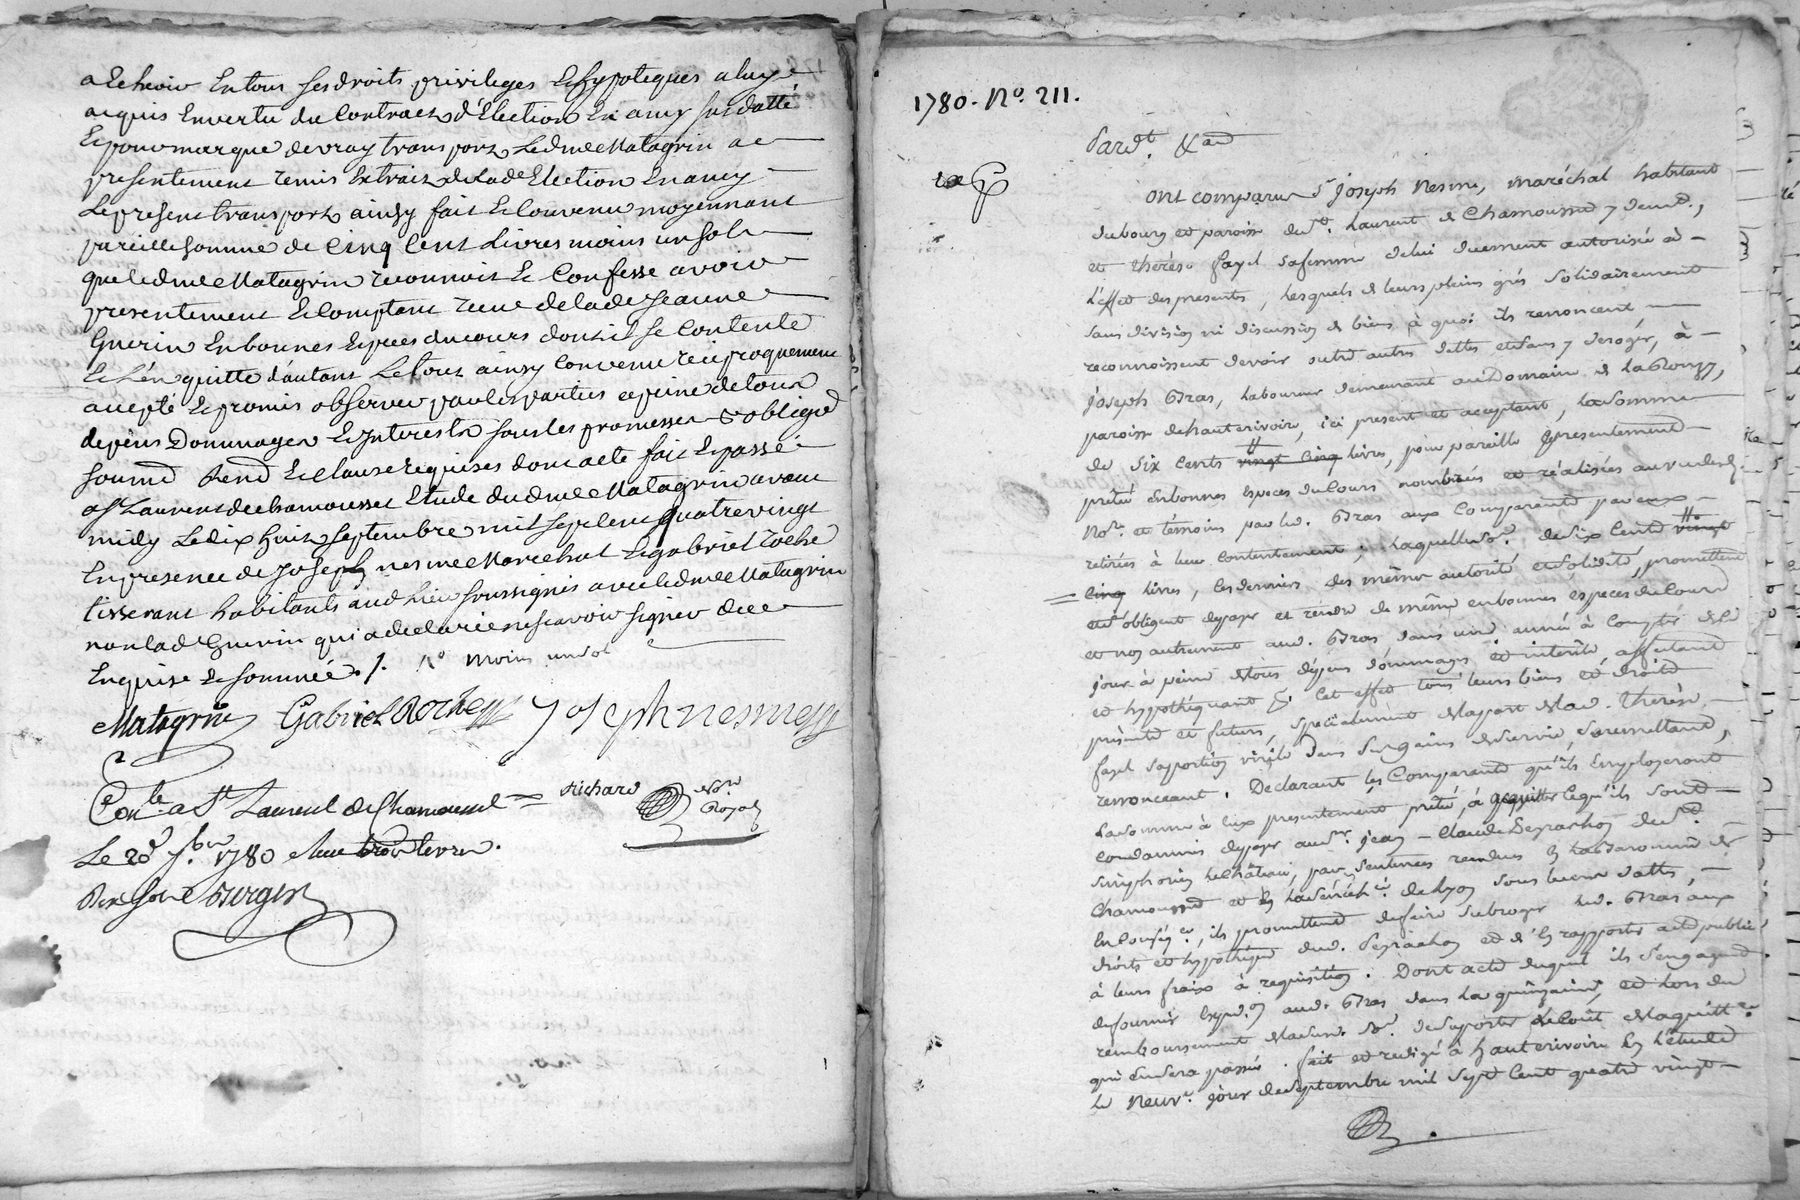 acheoir En tous ses droits privileges Et hypoteques a luy
acquis En vertu du Contract d'Election En amy susdatté
Et pour marque de vray transport Led me Matagrin a
presentement remis Extrait de lade Election En amy
Le present transport ainsy fait Et Convenu moyennant
pareille somme de Cinq Cent Livres moins un sol
que led me Matagrin reconnoit Et Confesse avoir
presentement Et Comptant receu de lade Jeanne
Guerin En bonnes Espèces du cours dont il se Contente
Et L'en quitte d'autant Le tout ainsy Convenu réciproquement
accepté Et promis observer par les parties a peine de tous
depens Dommages Et Interests sous les promesses obligons
soumd Rend Et clause requises dont acte fait Et passé
a St Laurent de chamousset Etude dud me Matagrin avant
midy Le dix huit septembre mil sept cent quatre vingt
En presence de Joseph nesme Marechal Et gabriel roche
tisserant habitants aud lieu soussignés avec led me Matagrin
non lade Guerin qui a declaré ne scavoir signer de ce
Enquise Et sommée ./. Ro moins un sol
Matagrin Gabriel Rochey Joseph nesmey
Con.le a St Laurent de Chamousset Richard Nore Royal
Le 20e 7.bre 1780 Reçu trois livres.
Bergen
1780. No. 211.
Pardt. &a
Ont comparu Sr Joseph Nesme, maréchal habitant
du bourg et paroisse de St. Laurent de Chamousset y demt.,
et thérèse fayel sa femme de lui duement autorisée à
l'effet des presentes, lesquels de leurs pleins grés solidairement
sans division ni discussion de biens à quoi ils renoncent,
reconnoissent devoir outre autres dettes et sans y deroger, à
Joseph Gras, laboureur demeurant au Domaine de la Ronzy,
paroisse de hauterivoire, ici présent et acceptant, la somme
de six cents vingt cinq livres, pour pareille presentement
prêtée en bonnes especes du Cours nombrées et réalisées au vu desd.
Nore. et témoins par led. Gras aux Comparants par eux
retirées à leur contentement; laquelle So. de six cents vingt
cinq livres, les derniers des même autorité et solidité, promettent
et s'obligent de payer et rendre de même en bonnes especes du Cours
et non autrement aud. Gras dans une année à Compter de ce
jour à peine de tous dépens dommages et interêts affectant
et hypothéquant à Cet effet tous leurs biens et droits
présents et futurs, specialement de la part de lad. Thérèse
fayel sa portion virile dans ses gains de survie, soumettant,
renonceant. Declarant les Comparants qu'ils Employeront
la somme à eux presentement prêtée, à acquitter Ce qu'ils sont
condamnés de payer au Sr. jean-Claude de St.
Simphorien le château, par sentences rendues En la Baronnie de
Chamousset et En la Sénéch.ée de Lyon sous leurs dattes,
En Conséq.ce, ils promettent de faire subroger led. Gras aux
droits et hypothèque dud. et d'En rapporter acte public
à leurs fraix à requisition. Dont acte duquel ils s'engagent
de fournir Expéd.on aud. Gras dans la quinzaine, et lors du
remboursement de lad. So. de suporter le Coût de la quitt.ce
qui En sera passée. fait et redigé à hauterivoire En l'étude
le Neuve. jour de septembre mil sept Cent quatre vingt